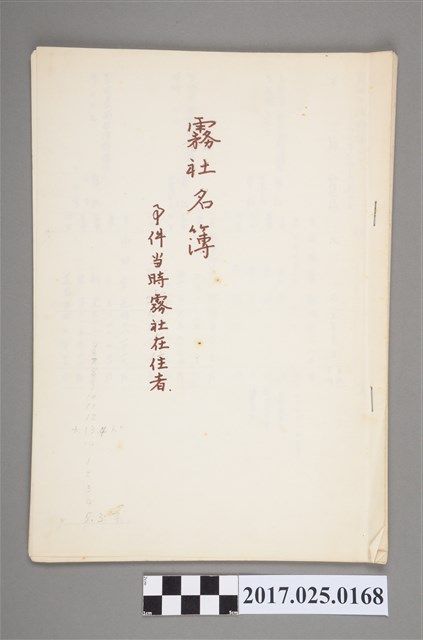 霧社名簿
事件当時霧社在住者.
2017.025.0168